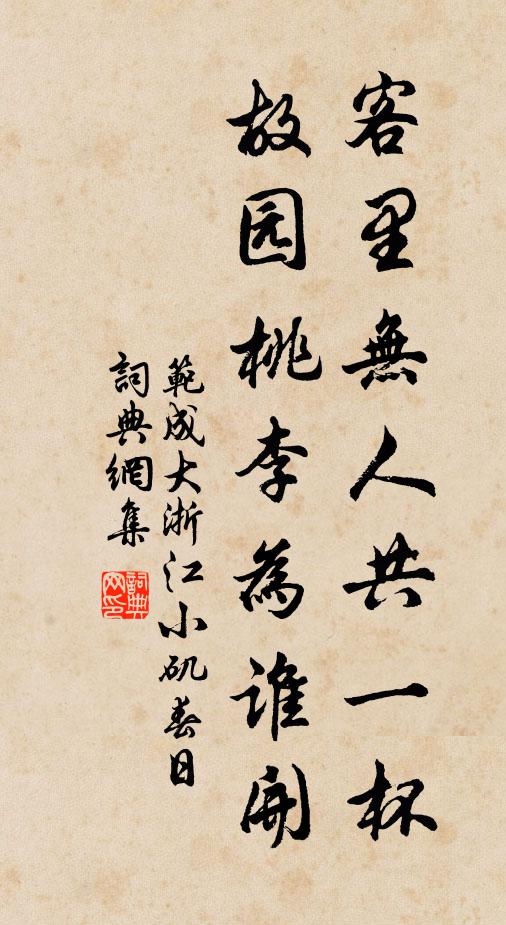 客里無人共一杯
故园桃李為誰開
範成大浙江小矶春日
詞典網集
詞典网印